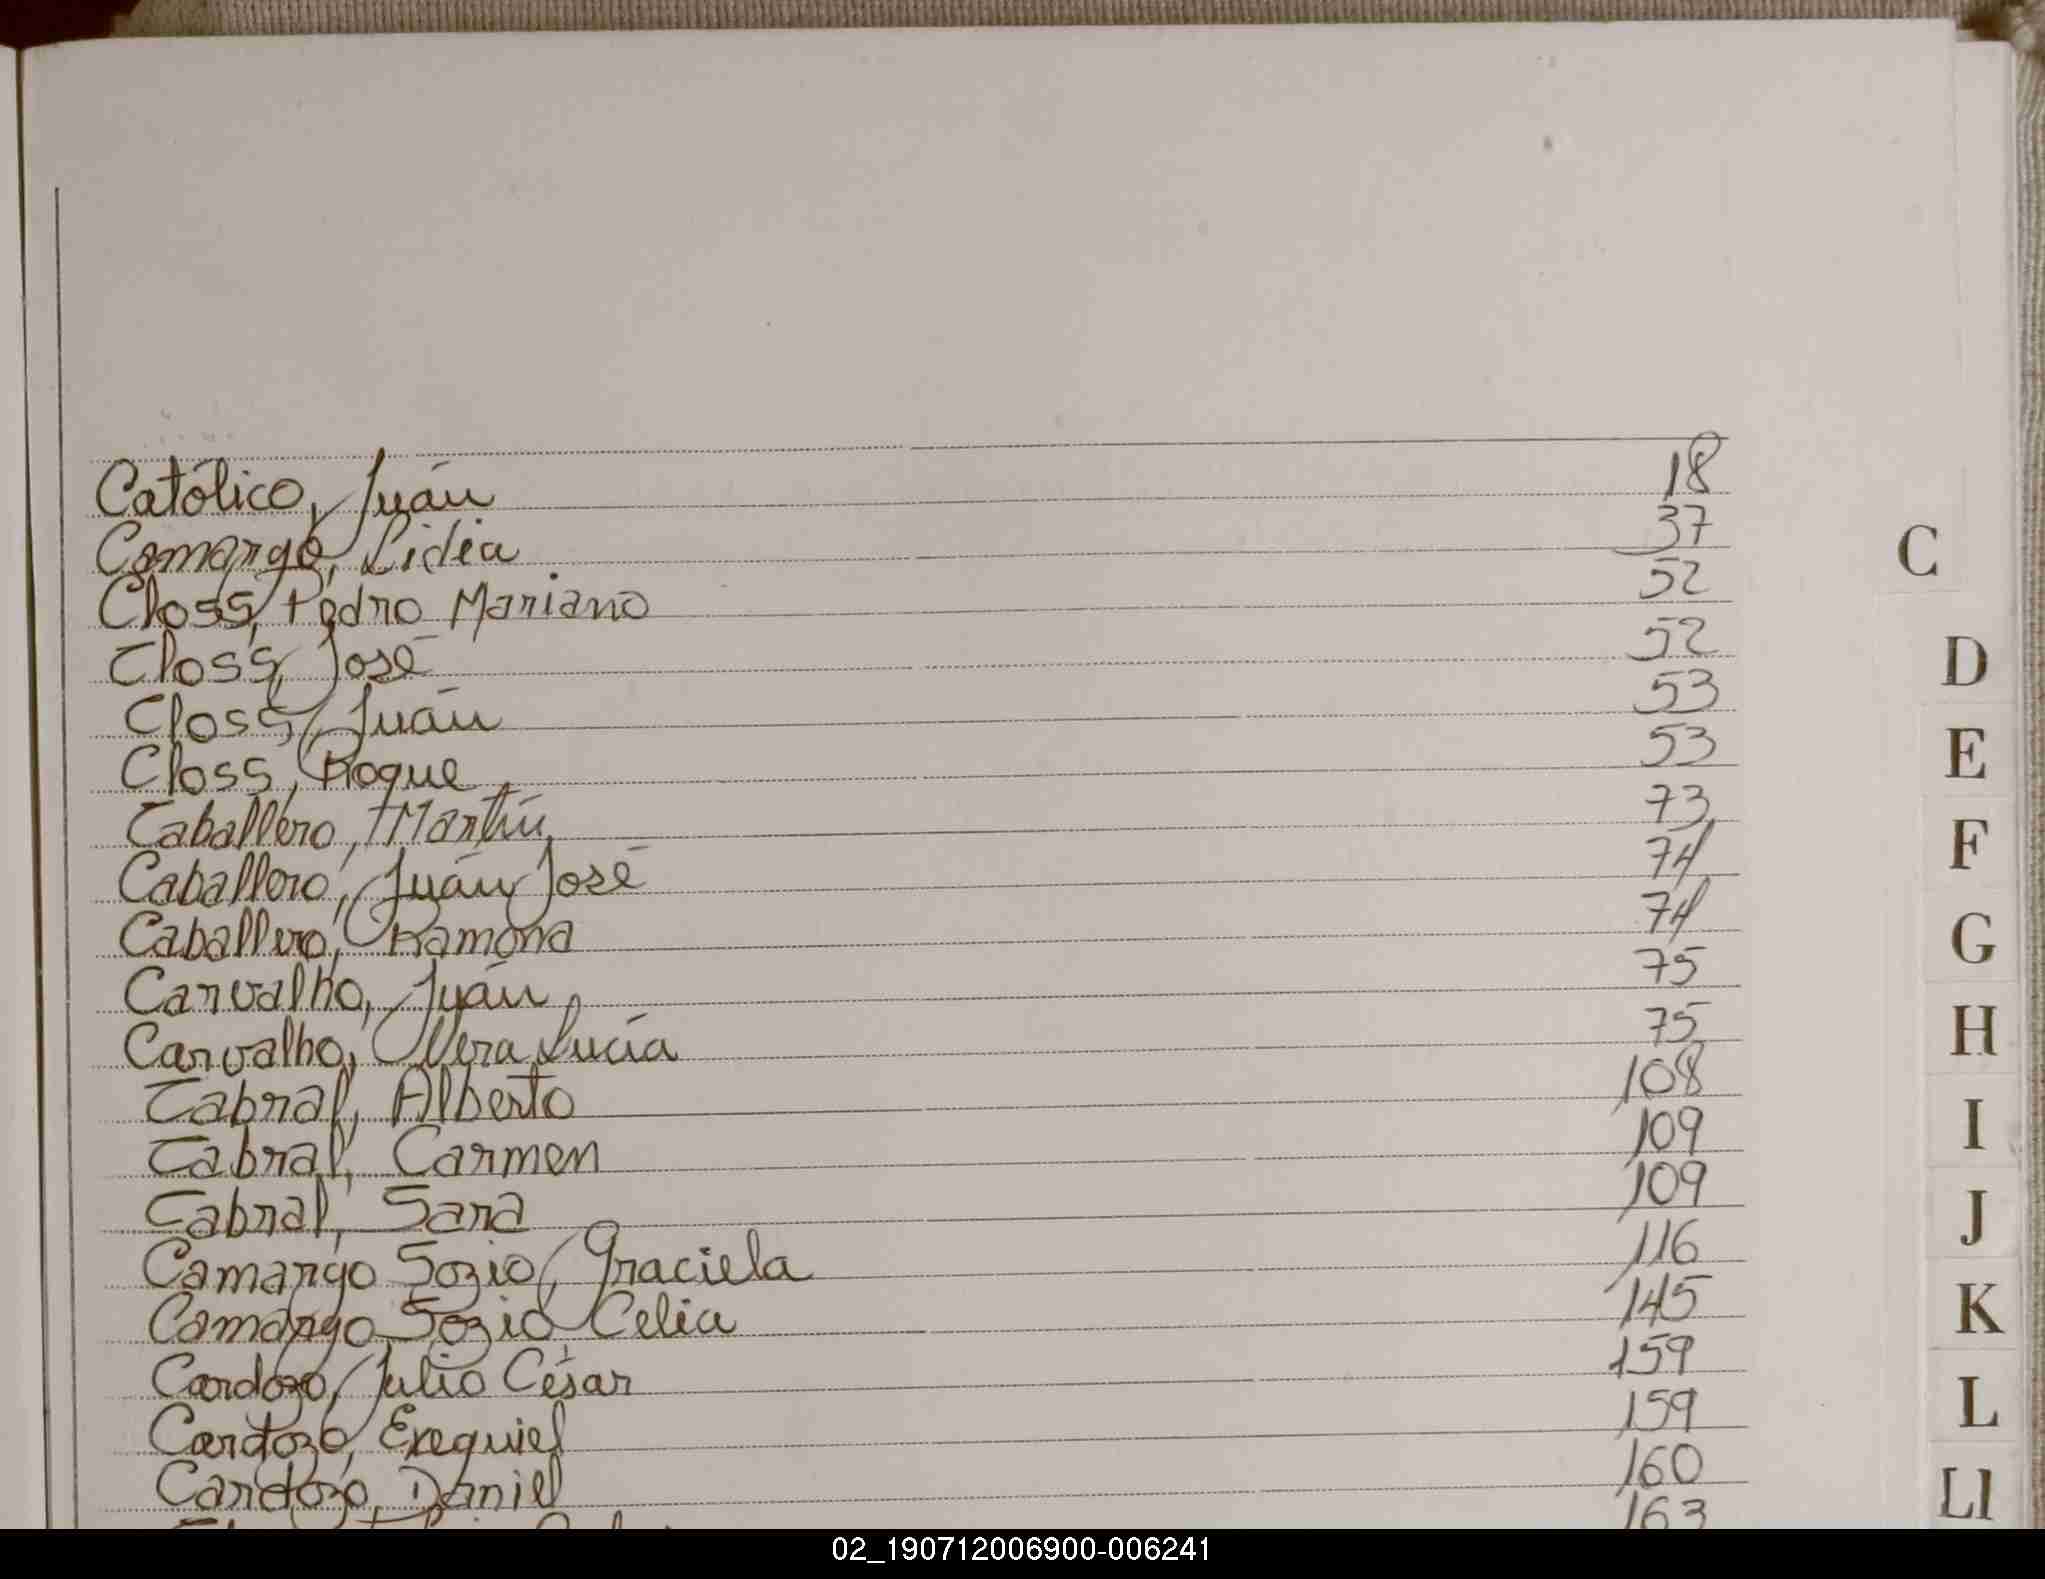 Católico, Juán 18
Camargo, Lidia 37
Closs, Pedro Mariano 52
Closs, José 52
Closs, Juán 53
Closs, Roque 53
Caballero, Martín 73
Caballero, Juán José 74
Caballero, Ramona 74
Carvalho, Juán 75
Carvalho, Vera Lucía 75
Cabral, Alberto 108
Cabral, Carmen 109
Cabral, Sara 109
Camargo Sozio, Graciela 116
Camargo Sozio Celia 145
Cardozo, Julio César 159
Cardozo, Exequiel 159
Cardozo, Daniel 160
163
C
D
E
F
G
H
I
J
K
L
Ll
02_190712006900-006241